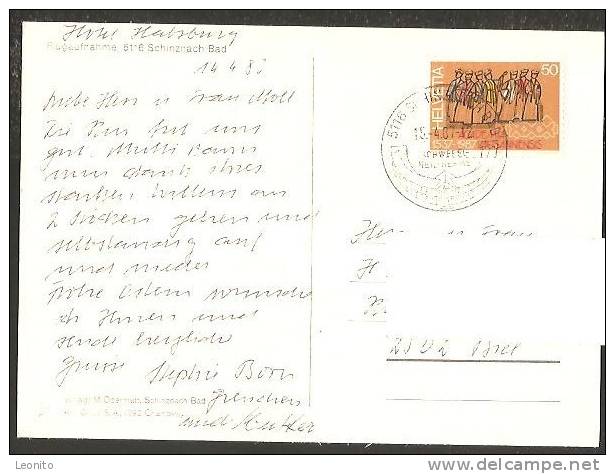 Hotel Habsburg
Flugaufnahme, 5116 Schinznach-Bad
14.4.87
Liebe Herr u Frau Moll
Die Kur hat uns
gut. Mutti kann
nun dank ihres
starken Willens an
2 Stöcken gehen und
selbständig auf
und nieder
frohe Ostern wünsche
ich Ihnen und
sende herzliche
Grüsse Stephie Born
Grenchen
und Mutter
M. Obermuth, Schinznach Bad
HELVETIA
50
1537-1987
5116
15.-4.87
Herr u Frau
H
2502 Biel
Leonito
www.delcampe.net